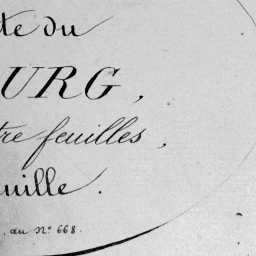 te du
URG,
tre feuilles,
uille.
. au N° 668.